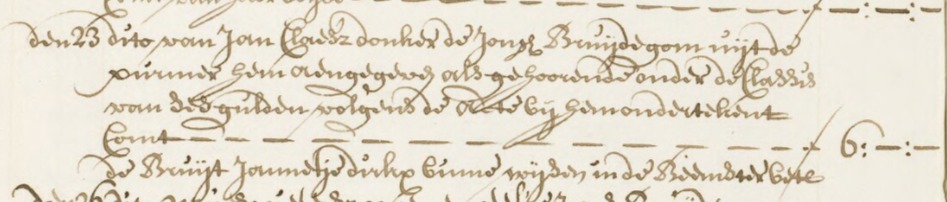 den 23 dito van Jan Claesz donker de Jong Bruijdegom uijt de
purmer hem aengegeven als gehoorende onder de Classis
van ses gulden volgens de Acte bij hem ondertekent
Comt — — — — — — — — — — — — 6:—:—
de Bruijt Jannetje dirkx binne wijsen in de Beemster bete